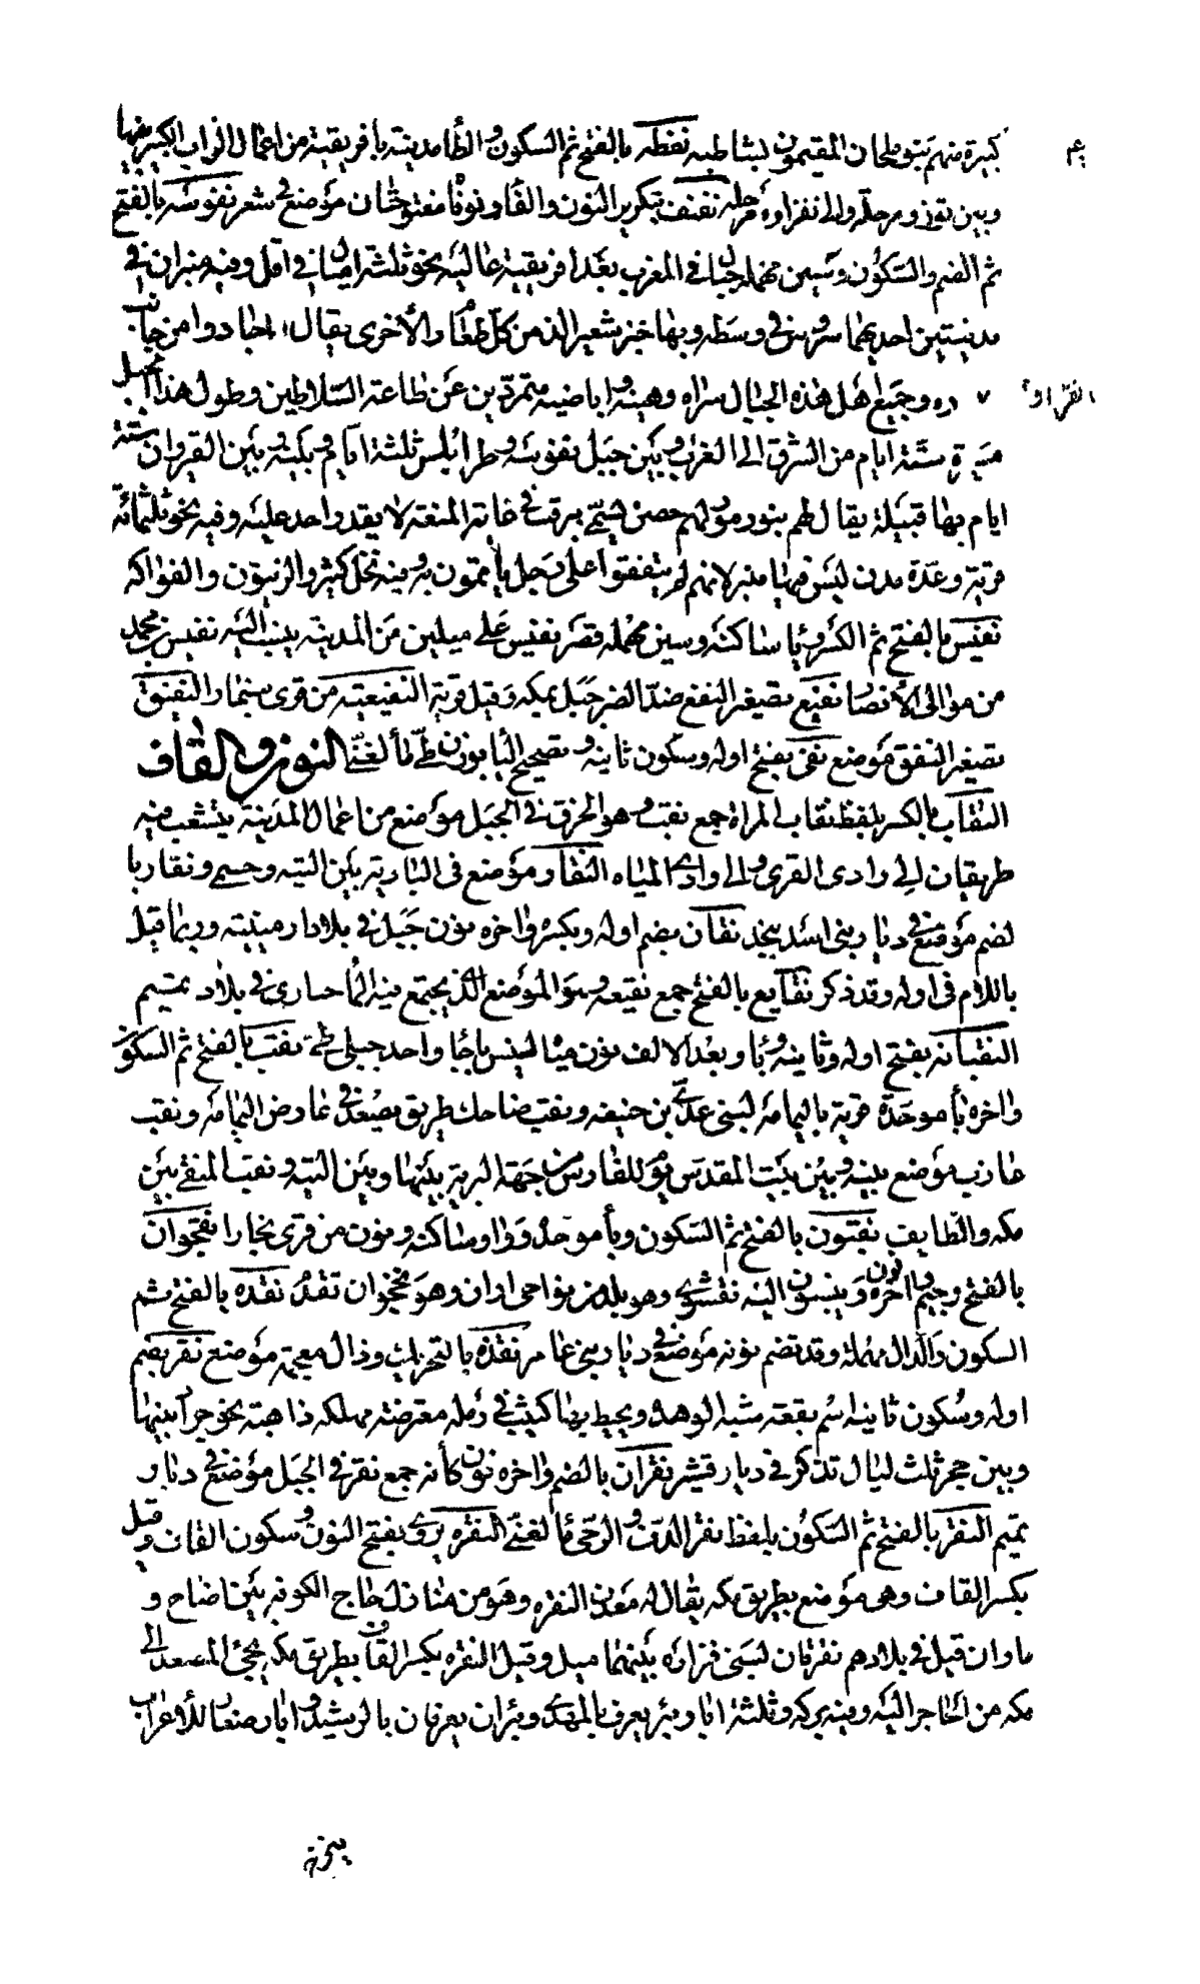 كبيرة منهم بنو ملحان المقيمون بشاطبه نفطه بالفتح ثم السكون والطا مدينة بافريقية من اعمال الزاب الكبير بينها
وبين توزر مرحلة والى نفزاوه مرحله نفنف بتكرير النون والفا ونونا مفتوحتان موضع في شعر نفوسه بالفتح
ثم الضم والسكون وسين مهمله جبال في المغرب بعد افريقية عاليه نحو ثلثه اميال في اقل وفيه منبران في
مدينتين احديهما سروس في وسطه وبها خبز شعير الذ من كل طعام والأخرى يقال لها جادوا من جانب
ده وجميع اهل هذه الجبال شراه وهبيه واباضيه متمردين عن طاعة السلاطين وطول هذا الجبل
مسيرة ستة ايام من الشرق الى الغرب وبين جبل نفوسه وطرابلس ثلثة ايام وبينه وبين القيروان ستة
ايام بها قبيلة يقال لهم بنو زمور لهم حصن يسمى بيرقت في غاية المنعة لا يقدر احد عليه وفيه نحو ثلثمائة
قرية وعدة مدن ليس فيها منبر لانهم لم يتفقوا على رجل يأتمون به وفيه نخل كثير والزيتون والفواكه
نفيس بالفتح ثم الكسر ويا ساكنه وسين مهمله قصر نفيس على ميلين من المدينه ينسب اليه نفيس بن محمد
من موالى الأنصار نفيع تصغير النفع ضد الضر جبل بمكه وقيل قرية النفيعيه من قرى سنجار النفيق
تصغير النفق موضع نفى بفتح اوله وسكون ثانيه وتصحيح اليا بوزن ظبى ما لغنى النون والقاف
النقاب بالكسر بلفظ نقاب المراة جمع نقب وهو الخرق في الجبل موضع من اعمال المدينة يتشعب منه
طريقان الى وادى القرى والى وادى المياه النقار موضع في البادية بين التيه وحسمى ونقار با
لضم موضع في ديار بنى اسد بنجد نقان بضم اوله ويكسر واخره نون جبل في بلاد ارمينيه وربما قيل
باللام في اوله وقد ذكر نقايع بالفتح جمع نقيعه وهو الموضع الذي يجتمع فيه الما حبارى في بلاد تميم
النقبانه بفتح اوله وثانيه وبا وبعد الالف نون ما لسنبس باجا واحد جبلى طى نقب بالفتح ثم السكون
واخره با موحدة قرية باليمامه لبنى عدى بن حنيفه ونقب ضاحك طريق يصعد في عارض اليمامه ونقب
عازب موضع بينه وبين بيت المقدس يوم للفارس من جهة البرية بينها وبين التيه ونقب المنقى بين
مكه والطايف نقبون بالفتح ثم السكون وبا موحدة وواو ساكنه ونون من قرى بخارا نقجوان
بالفتح وجيم واخره نون وينسبون اليه نقشوى وهو بلد من نواحى اران وهو نخجوان تقدم نقده بالفتح ثم
السكون والدال مهملة وقد تضم نونه موضع في ديار بنى عامر نقذه بالتحريك وذال معجمه موضع نقر بضم
اوله وسكون ثانيه اسم بقعته شبه الوهده ويحيط بها كثيب في رمله معترضة مهلكه ذاهبة نحو جراد بينها
وبين حجر ثلث ليال تذكر في ديار قشير نقران بالضم واخره نون كأنه جمع نقر في الجبل موضع في ديار
تميم النقر بالفتح ثم السكون بلفظ نقر الدف والرحى ما لغنى النقره يروى بفتح النون وسكون القاف وقيل
بكسر القاف وهى موضع بطريق مكه يقال له معدن النقره وهو من منازل حاج الكوفه بين اضاخ و
ماوان قيل في بلادهم نقرتان لبنى فزاره بينهما ميل وقيل النقره بكسر القاف بطريق مكه يجئ المصعد الى
مكه من الحاجر اليه وفيه بركه وثلثة ابار وبئر يعرف بالمهدى وبئران يعرفان بالرشيد وابار صغار للأعراب